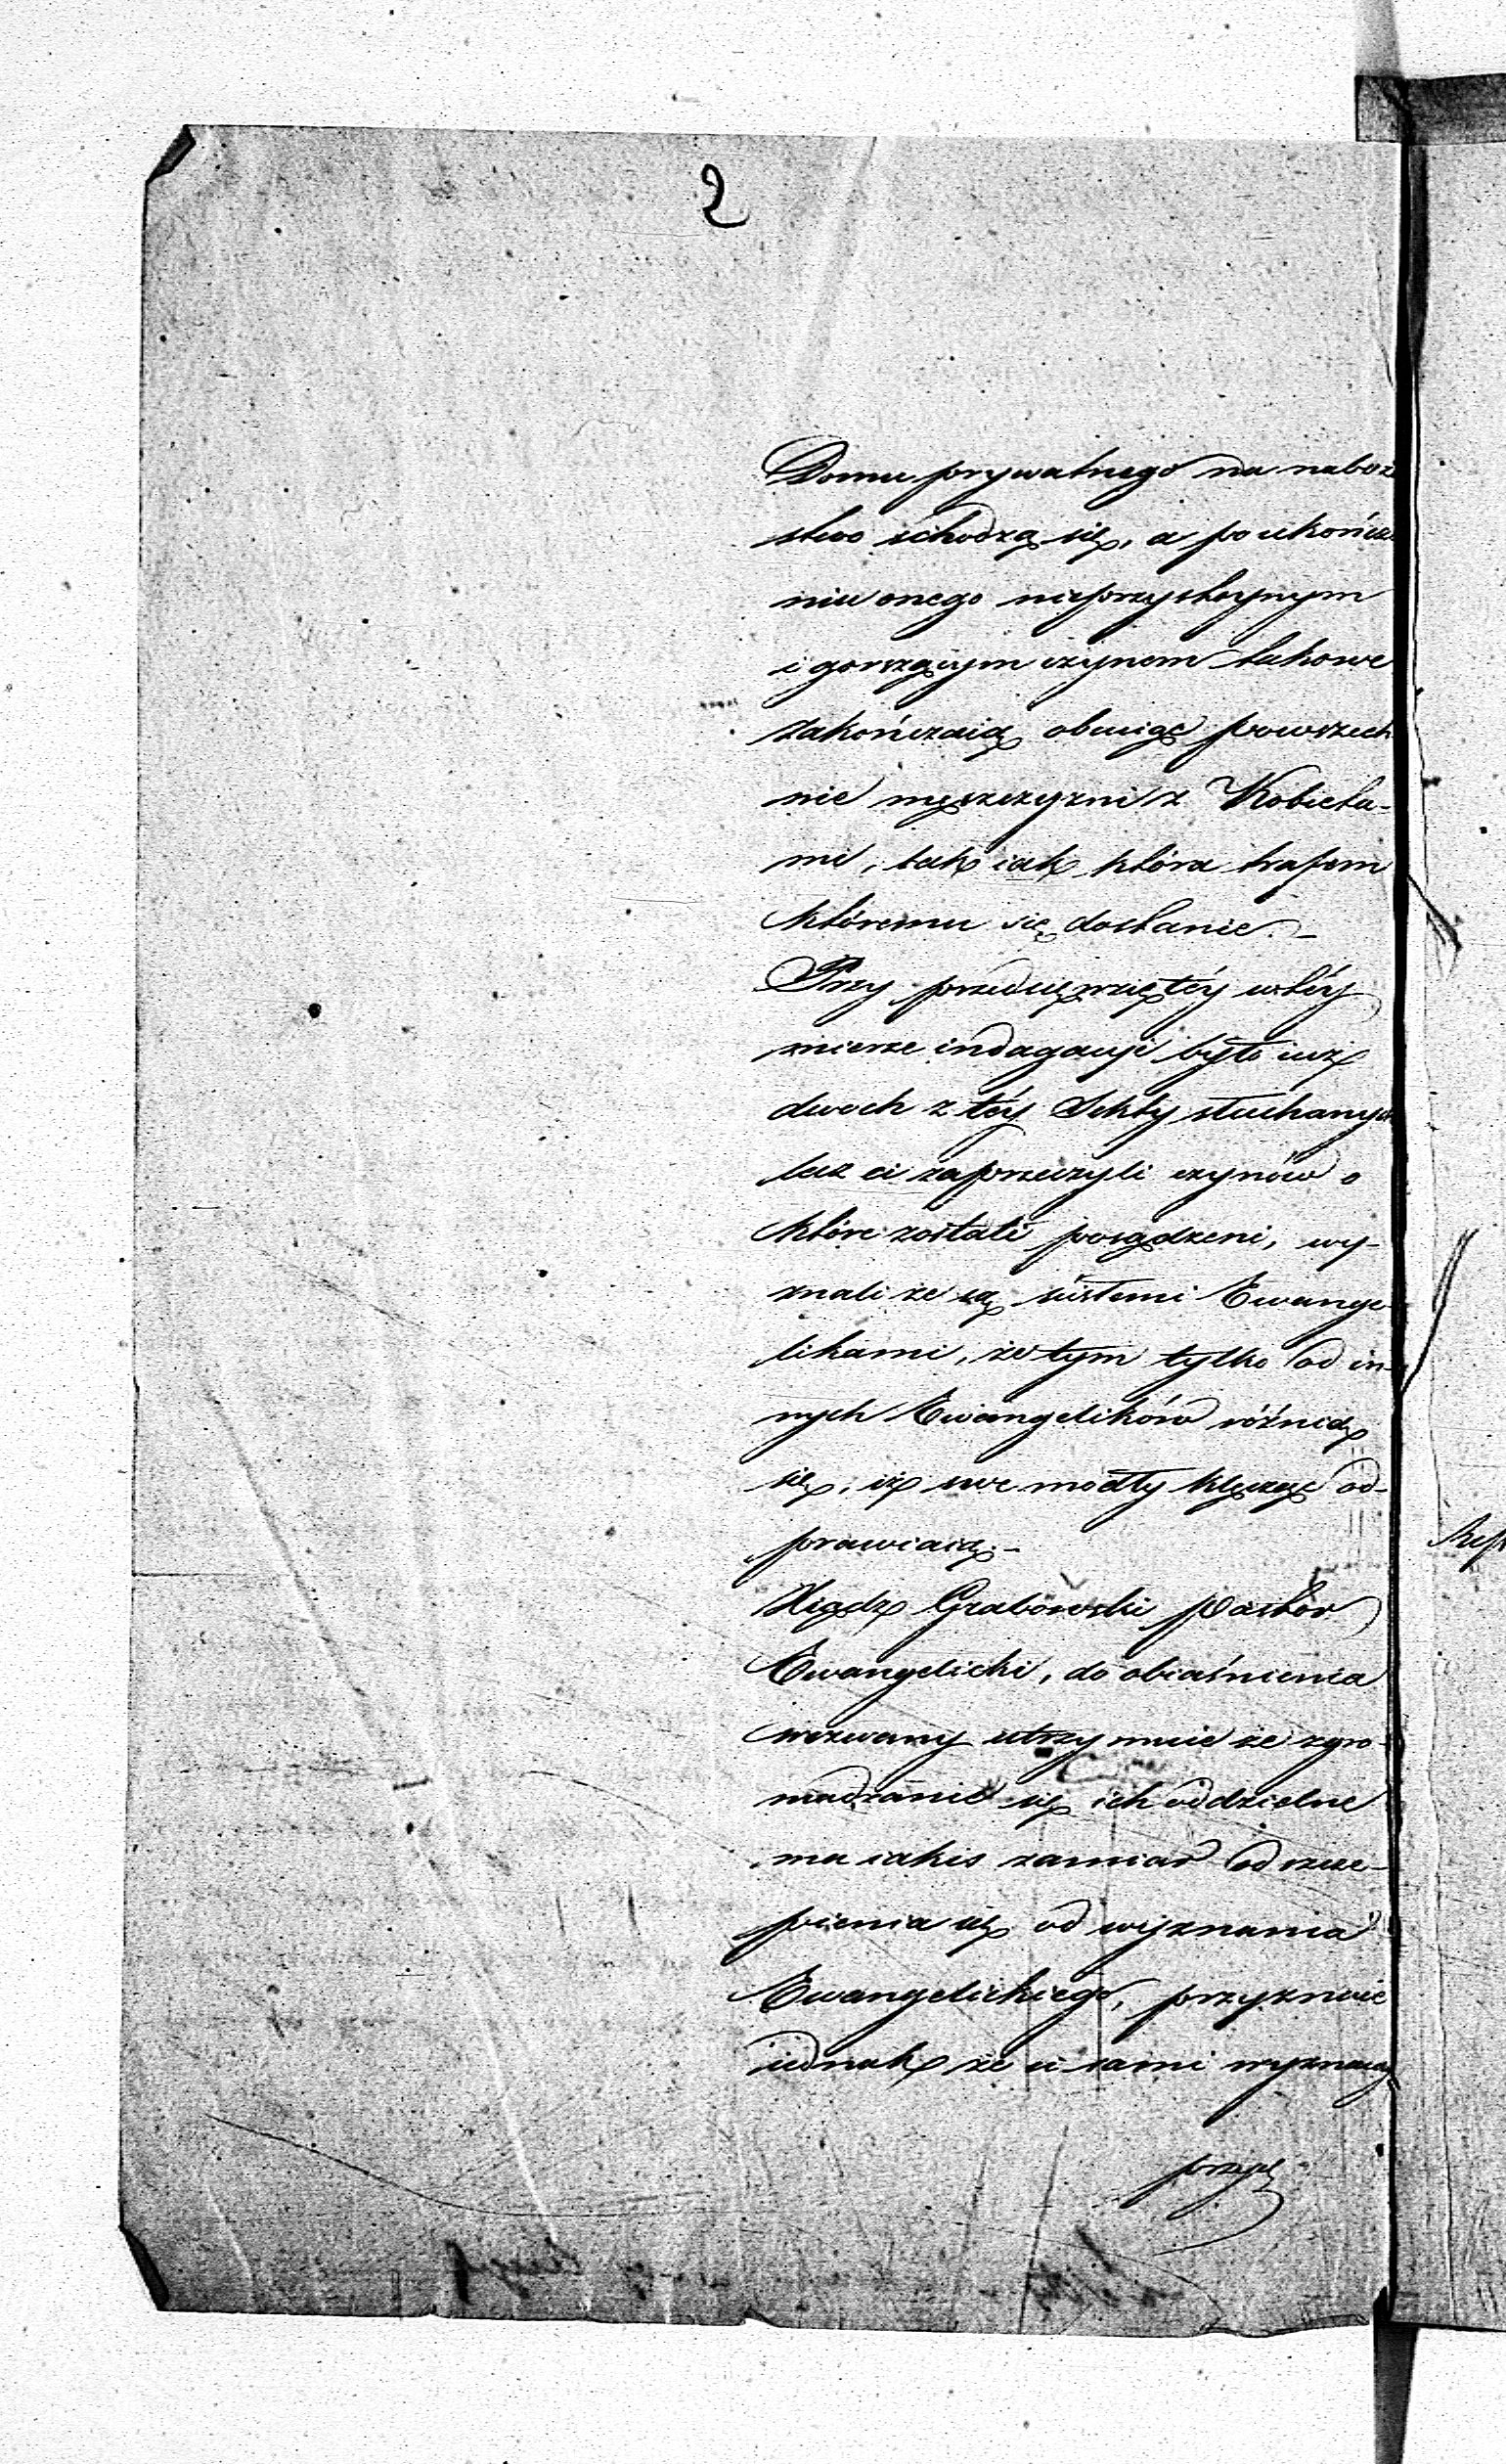 2
Domu prywatnego na naboże
stwo schodzą się, a po ukończe
niu onego nieprzystoynym
i gorszącym czynem takowe
zakończaią obcuiąc powszech
nie męszczyzni z Kobieta-
mi, tak iak która trafem
któremu się dostanie. –
Przy przedsięwziętéy w téy
mierze indagacyi było iuż
dwoch z téy Sekty słuchanych
lecz ci zaprzeczyli czynów o
które zostali posądzeni, wy-
znali że są Ewange-
likami, że tym tylko od in-
nych Ewangelików różnią
się, iż swe modły klęcząc od-
prawiaią. –
Xiądz Grabowski Pastor
Ewangelicki, do obiaśnienia
wezwany utrzymuie że zgro-
madzanie się ich oddzielne
ma iakis zamiar odszcze-
pienia się od wyznania
Ewangelickiego, przyznaie
iednak że ci sami wyznaią
przy